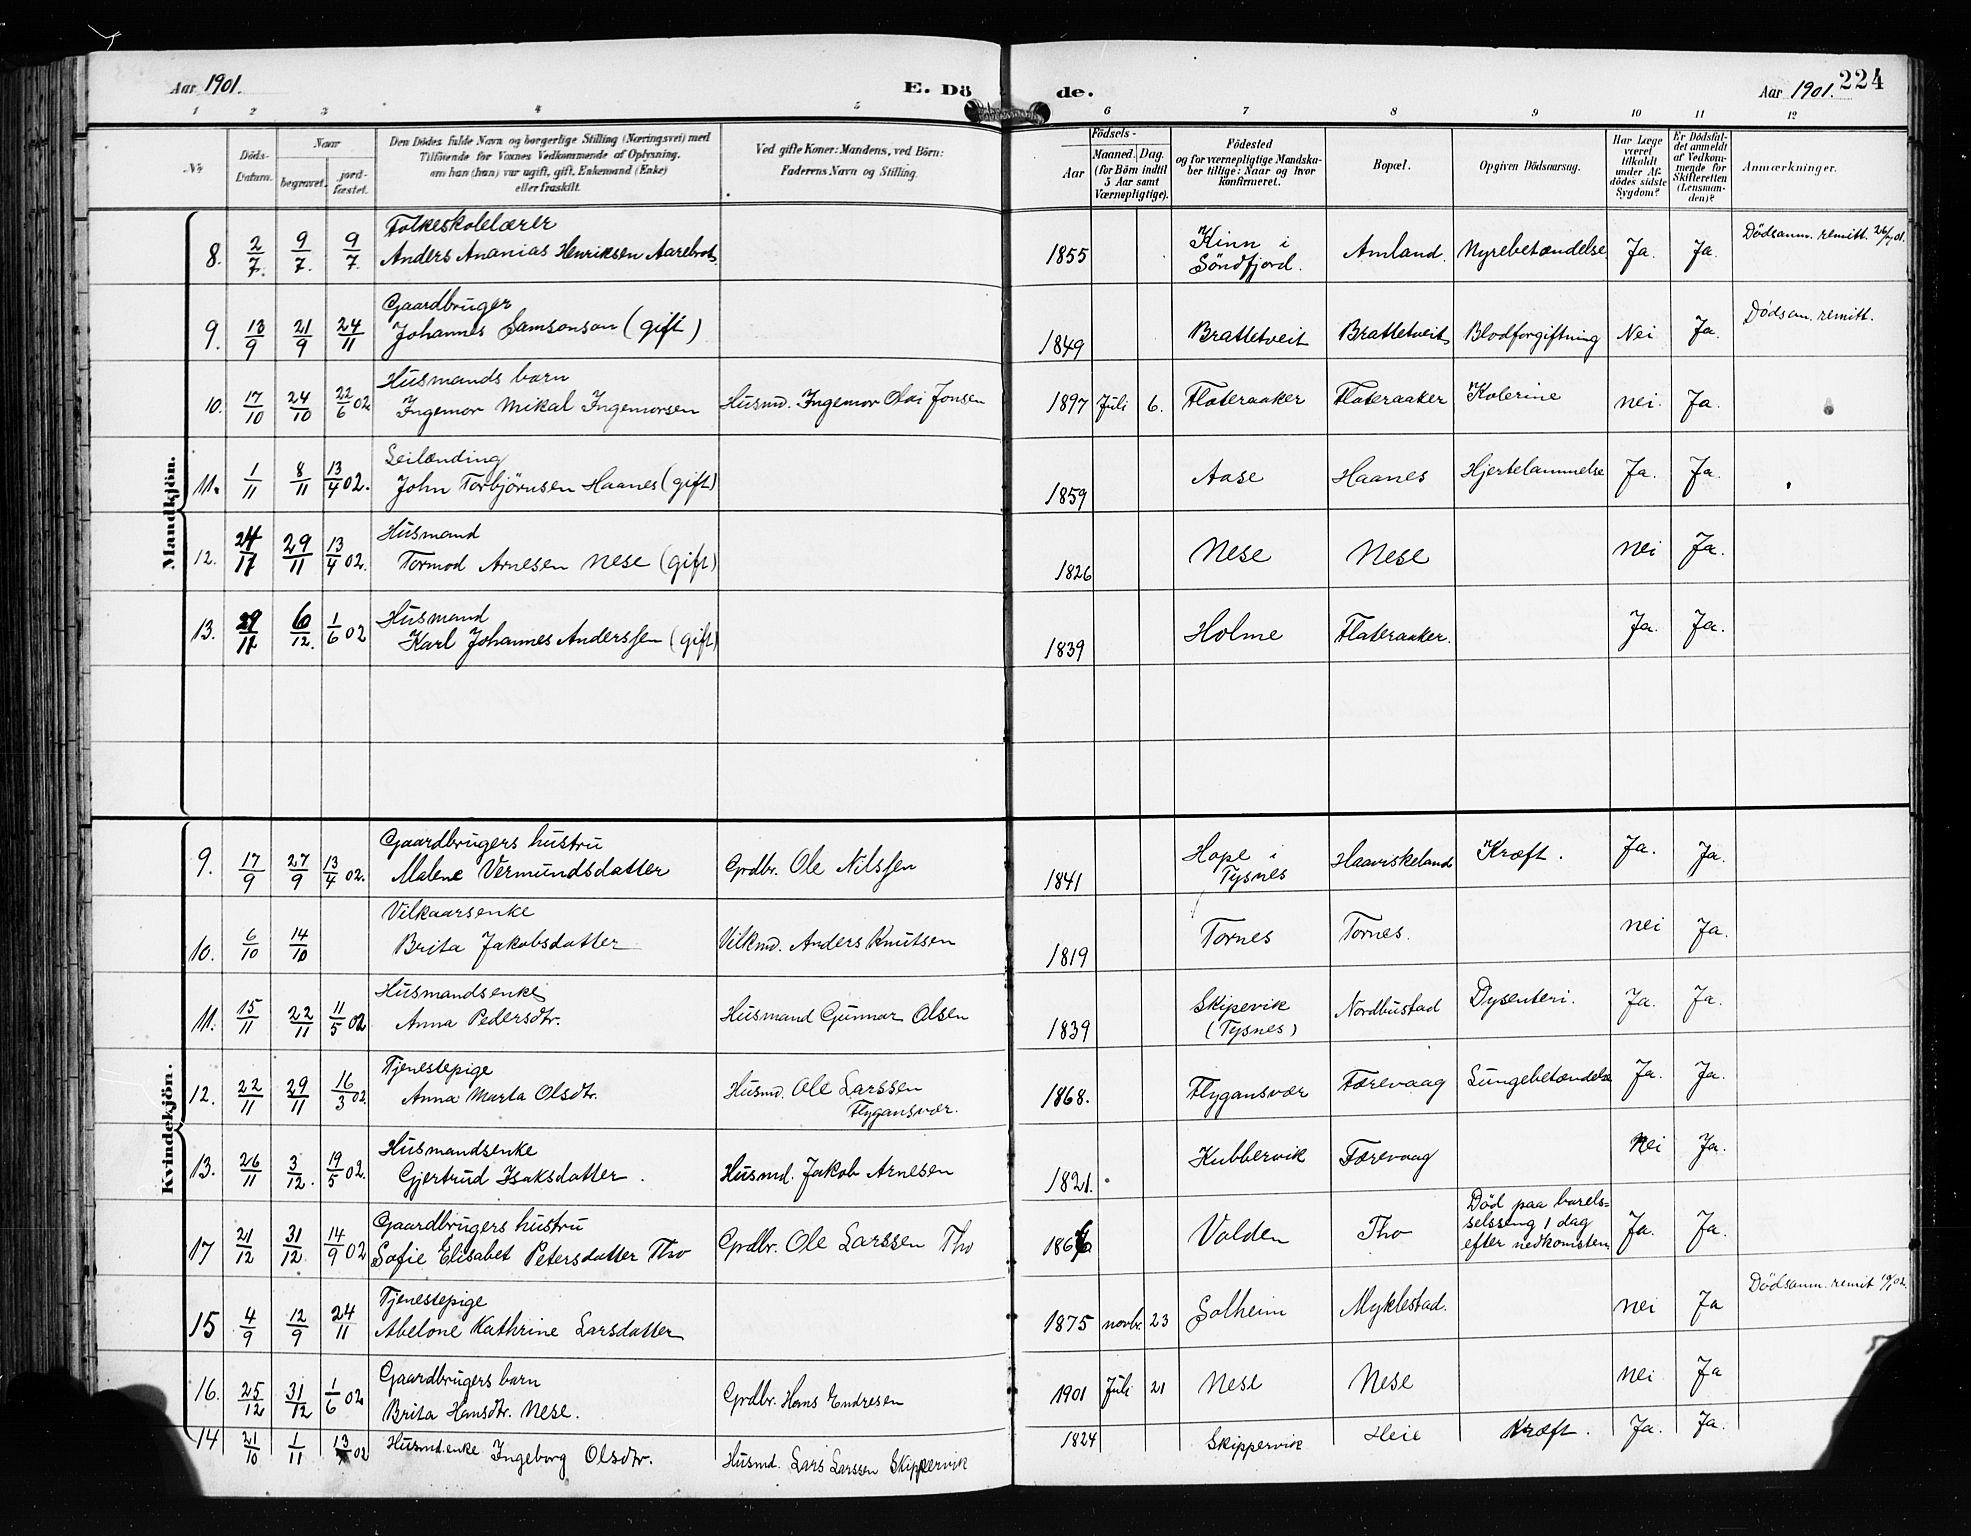 Aar 1901.
E. Dö
de.
Aar 1901.
224
1 2 3 4 5 6 7 8 9 10 11 12
No
Döds-
Datum.
Naar
begravet.
jord-
fæstet.
Den Dödes fulde Navn og borgerlige Stilling (Næringsvei) med
Tilföiende for Voxnes Vedkommende af Oplysning,
om han (hun) var ugift, gift, Enkemand (Enke)
eller fraskilt.
Ved gifte Koner: Mandens, ved Börn:
Faderens Navn og Stilling.
Födsels-
Aar
Maaned. Dag.
(for Börn indtil
5 Aar samt
Værnepligtige).
Födested
og for værnepligtige Mandska-
ber tillige: Naar og hvor
konfirmeret.
Bopæl.
Opgiven Dödsaarsag.
Har Læge
været
tilkaldt
under Af-
dödes sidste
Sygdom?
Er Dödsfal-
det anmeldt
af Vedkom-
mende for
Skifteretten
(Lensman-
den)?
Anmærkninger.
Mandkjön.
8. 2/7. 9/7. 9/7. Folkeskolelærer
Anders Ananias Henriksen Aarebrot. 1855 Kinn i
Söndfjord. Amland. Nyrebetændelse Ja. Ja. Dödsanm. remitt. 26/7 01.
9. 13/9 21/9 24/11 Gaardbruger
Johannes Samsonson (gift) 1849 Brattetveit Brattetveit Blodforgiftning Nei Ja. Dödsan. remitt.
10. 17/10 24/10 22/6 02 Husmands barn
Ingemor Mikal Ingemorsen Husmd. Ingemor Olai Jonsen 1897 Juli 6. Flateraaker Flateraaker Kolerine nei. Ja.
11. 1/11 8/11 13/4 02. Leilænding
John Torbjørnsen Haanes (gift) 1859 Aase Haanes Hjertelammelse Ja. Ja.
12. 24/11 29/11 13/4 02. Husmand
Tormod Arnesen Nese (gift) 1826 Nese Nese nei Ja.
13. 29/11 6/12. 1/6 02 Husmand
Karl Johannes Anderssen (gift) 1839 Holme Flateraaker. Ja. Ja.
Kvindekjön.
9. 17/9 27/9 13/4 02. Gaardbrugers hustru
Malene Vermundsdatter Grdbr. Ole Nilssen 1841 Hope i
Tysnes Haaviskeland Kræft. Ja. Ja.
10. 6/10 14/10 Vilkaarsenke
Brita Jakobsdatter Vilkmd. Anders Knutsen 1819 Tornes Tornes. nei Ja.
11. 15/11 22/11 11/5 02 Husmandsenke
Anna Pedersdtr. Husmand Gunnar Olsen 1839 Skipevik
(Tysnes) Nordhustad Dysenteri. Ja. Ja.
12. 22/11 29/11 16/3 02 Tjenestepige
Anna Marta Olsdtr. Husmd. Ole Larssen
Flygansvær. 1868. Flygansvær Færevaag Lungebetændelse Ja. Ja.
13. 26/11 3/12. 19/5 02. Husmandsenke
Gjertrud Isaksdatter. Husmd. Jakob Arnesen 1821. Kubbervik Færevaag Nei Ja.
17 21/12 31/12 14/9 02 Gaardbrugers hustru
Sofie Elisabet Petersdatter Tho Grdbr. Ole Larssen Tho 1866 Valden Tho Död paa barels-
selsseng 1 dag
efter nedkomsten Ja. Ja.
15 4/9 12/9 24/11 Tjenestepige
Abelone Kathrine Larsdatter 1875 novbr. 23 Solheim Myklestad. nei Ja Dödsanm. remit 10/1 02.
16. 25/12 31/12 1/6 02 Gaardbrugers barn
Brita Hansdtr. Nese. Grdbr. Hans Endresen 1901 Juli 21 Nese Nese nei Ja
14 21/10 1/11 13/4 02 Husmd.enke Ingeborg Olsdtr. Husmd. Lars Larssen Skippervik 1824 Skippervik Heie Kræft. Ja. Ja.